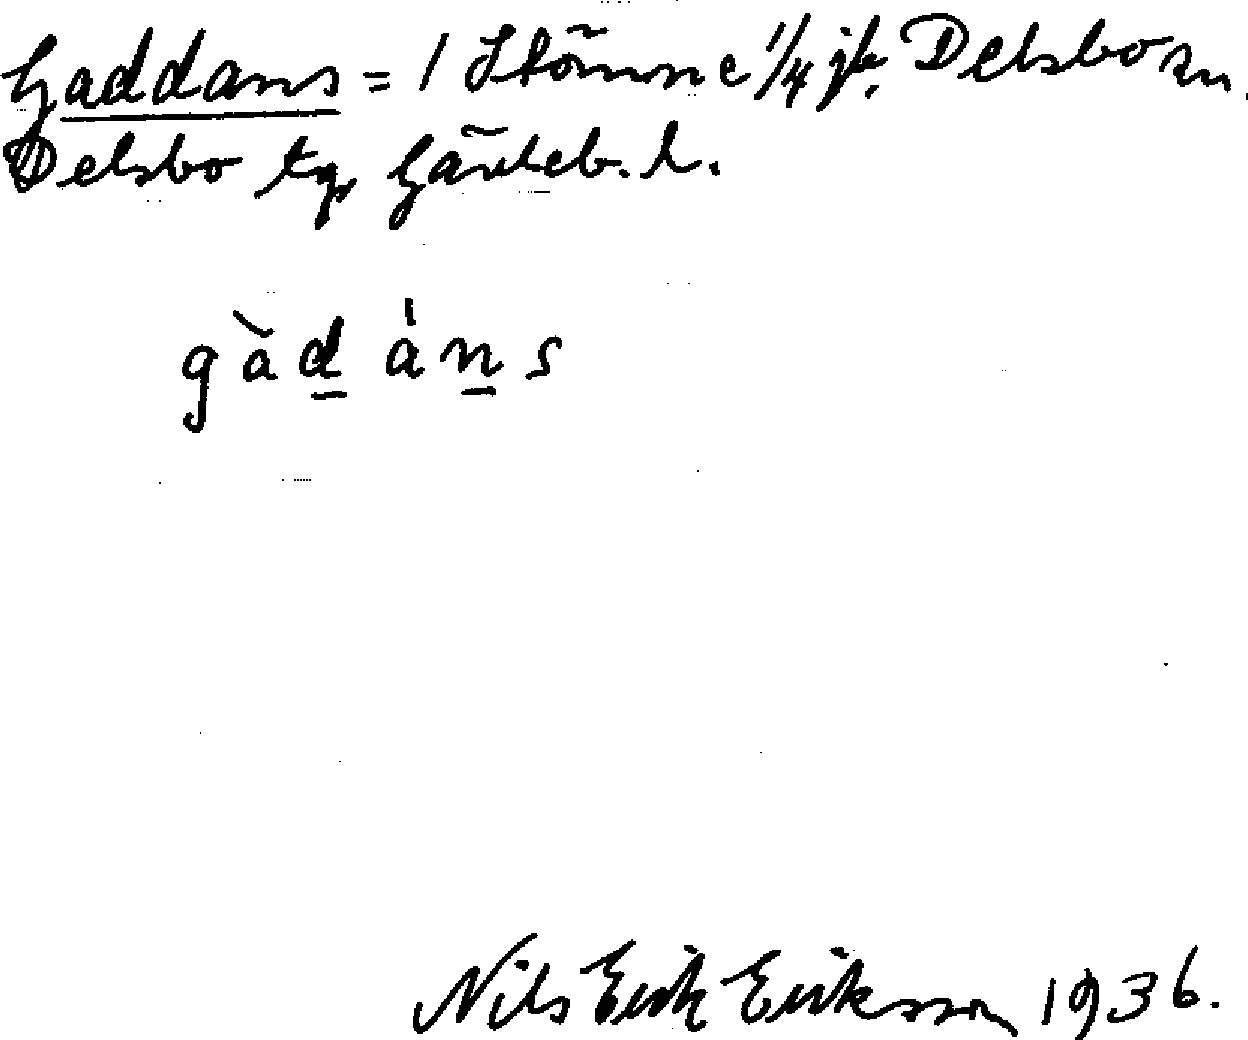 Gaddans = 1 Stömne 1/4 jk. Delsbo sn,
Delsbo tg, Gävleb. l.
gàdàns
Nils Erik Eriksson 1936.